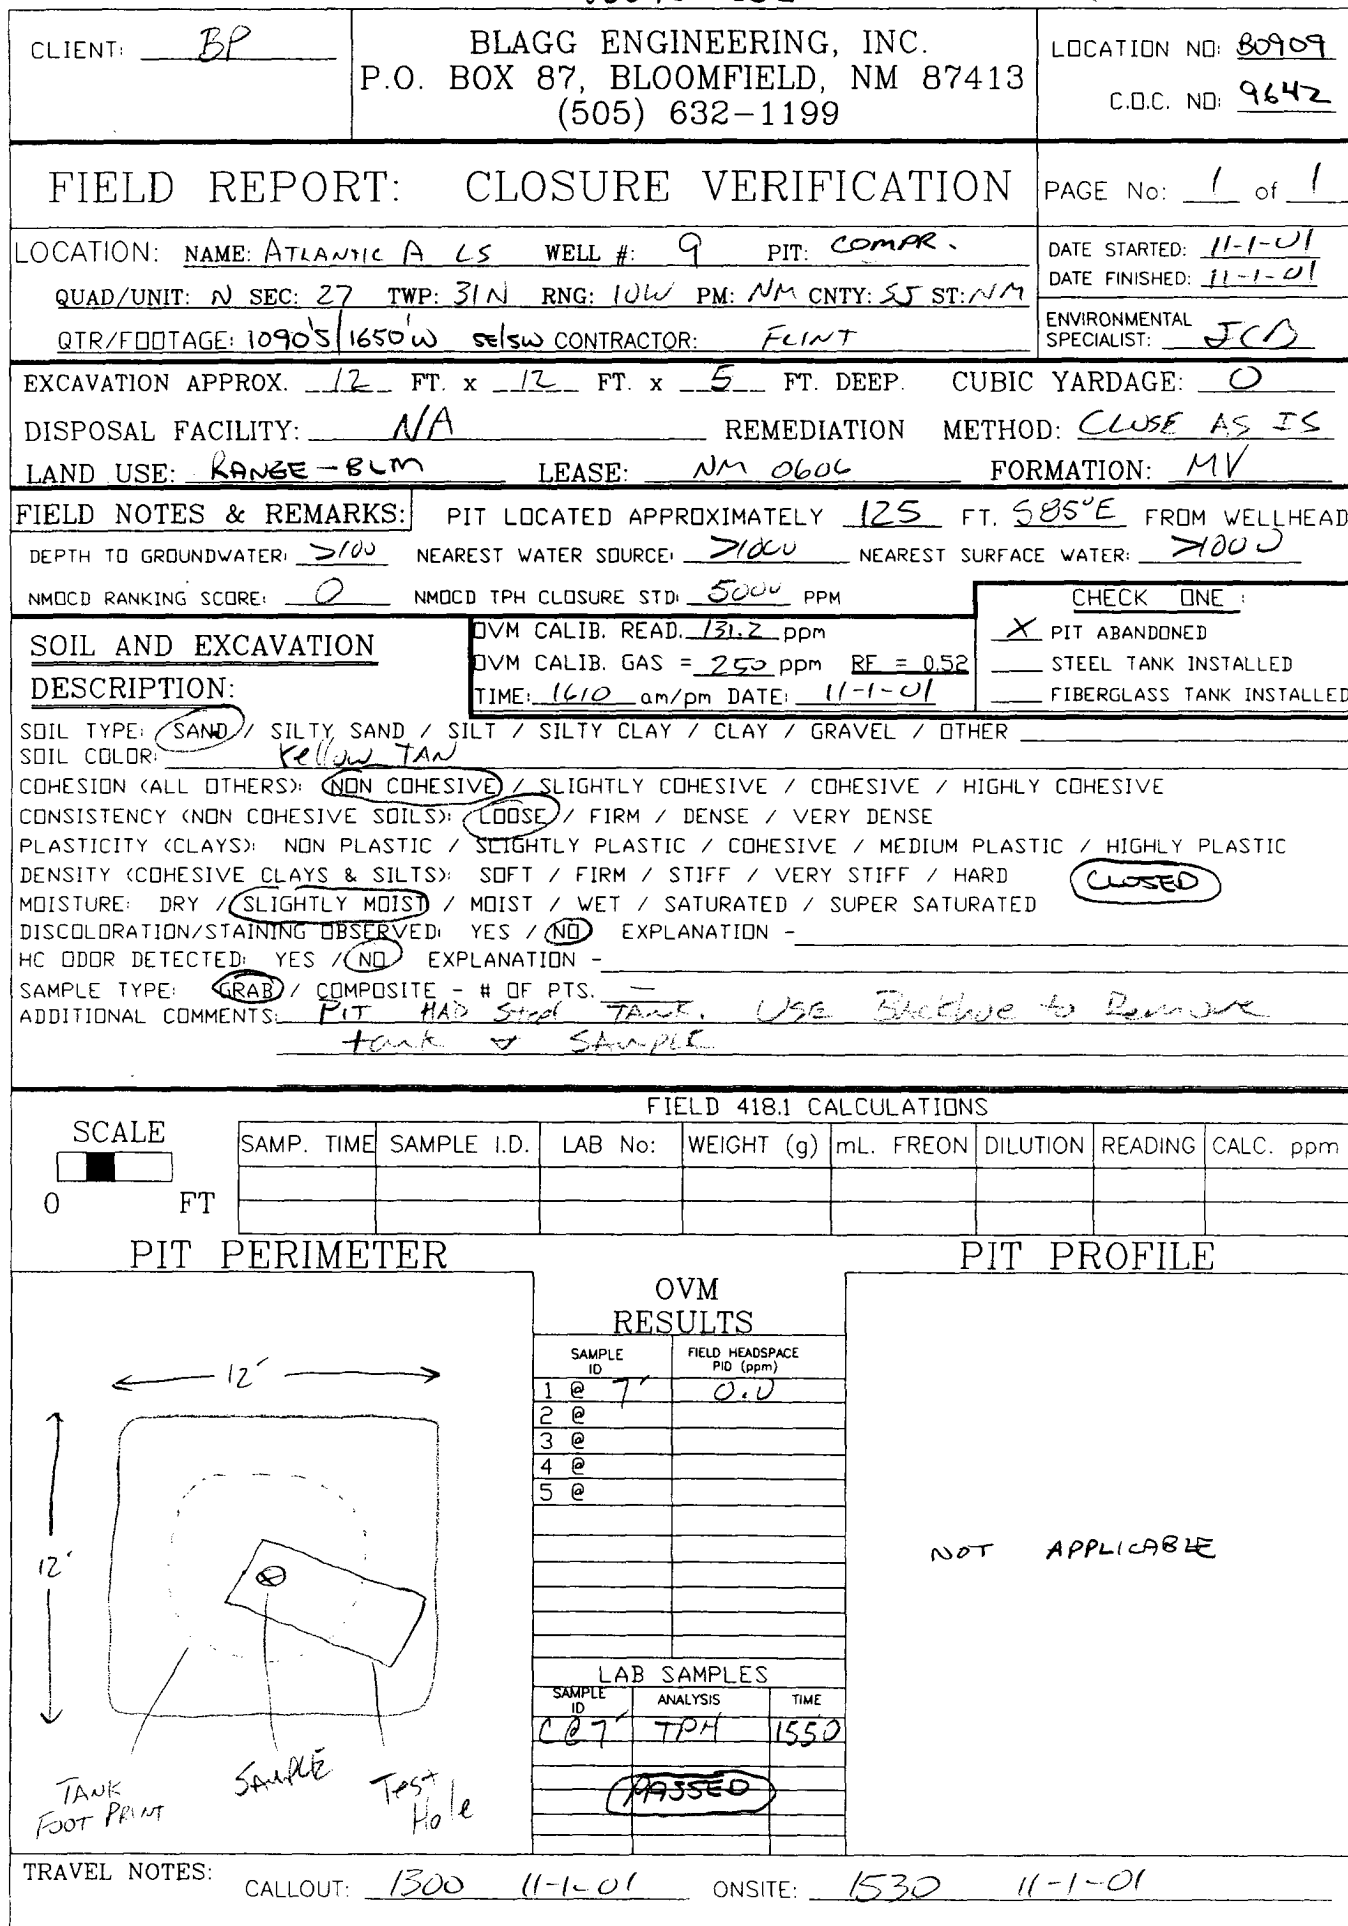 CLIENT: BP
BLAGG ENGINEERING, INC.
P.O. BOX 87, BLOOMFIELD, NM 87413
(505) 632-1199
LOCATION NO: B0909
C.O.C. NO: 9642
FIELD REPORT: CLOSURE VERIFICATION
PAGE No: 1 of 1
LOCATION: NAME: ATLANTIC A LS WELL #: 9 PIT: COMPR.
QUAD/UNIT: N SEC: 27 TWP: 31N RNG: 10W PM: NM CNTY: SJ ST: NM
QTR/FOOTAGE: 1090'S/1650'W SE/SW CONTRACTOR: FLINT
DATE STARTED: 11-1-01
DATE FINISHED: 11-1-01
ENVIRONMENTAL
SPECIALIST: JCB
EXCAVATION APPROX. 12 FT. x 12 FT. x 5 FT. DEEP. CUBIC YARDAGE: 0
DISPOSAL FACILITY: N/A REMEDIATION METHOD: CLOSE AS IS
LAND USE: RANGE - BLM LEASE: NM 0606 FORMATION: MV
FIELD NOTES & REMARKS: PIT LOCATED APPROXIMATELY 125 FT. S85°E FROM WELLHEAD
DEPTH TO GROUNDWATER: >100 NEAREST WATER SOURCE: >1000 NEAREST SURFACE WATER: >1000
NMOCD RANKING SCORE: 0 NMOCD TPH CLOSURE STD: 5000 PPM
CHECK ONE :
X PIT ABANDONED
STEEL TANK INSTALLED
FIBERGLASS TANK INSTALLED
SOIL AND EXCAVATION
DESCRIPTION:
OVM CALIB. READ. 131.2 ppm
OVM CALIB. GAS = 250 ppm RF = 0.52
TIME: 1610 am/pm DATE: 11-1-01
SOIL TYPE: SAND / SILTY SAND / SILT / SILTY CLAY / CLAY / GRAVEL / OTHER
SOIL COLOR: Yellow TAN
COHESION (ALL OTHERS): NON COHESIVE / SLIGHTLY COHESIVE / COHESIVE / HIGHLY COHESIVE
CONSISTENCY (NON COHESIVE SOILS): LOOSE / FIRM / DENSE / VERY DENSE
PLASTICITY (CLAYS): NON PLASTIC / SLIGHTLY PLASTIC / COHESIVE / MEDIUM PLASTIC / HIGHLY PLASTIC
DENSITY (COHESIVE CLAYS & SILTS): SOFT / FIRM / STIFF / VERY STIFF / HARD CLOSED
MOISTURE: DRY / SLIGHTLY MOIST / MOIST / WET / SATURATED / SUPER SATURATED
DISCOLORATION/STAINING OBSERVED: YES / NO EXPLANATION -
HC ODOR DETECTED: YES / NO EXPLANATION -
SAMPLE TYPE: GRAB / COMPOSITE - # OF PTS. —
ADDITIONAL COMMENTS: PIT HAD Steel TANK. USE Backhoe to Remove
tank & SAMPLE
FIELD 418.1 CALCULATIONS
SCALE
0 FT
SAMP. TIME SAMPLE I.D. LAB No: WEIGHT (g) mL. FREON DILUTION READING CALC. ppm
PIT PERIMETER
PIT PROFILE
OVM
RESULTS
SAMPLE ID FIELD HEADSPACE PID (ppm)
1 @ 7' 0.0
2 @
3 @
4 @
5 @
12'
12'
TANK
FOOT PRINT
SAMPLE
Test
Hole
NOT APPLICABLE
LAB SAMPLES
SAMPLE ID ANALYSIS TIME
C@7' TPH 1550
PASSED
TRAVEL NOTES: CALLOUT: 1300 11-1-01 ONSITE: 1530 11-1-01